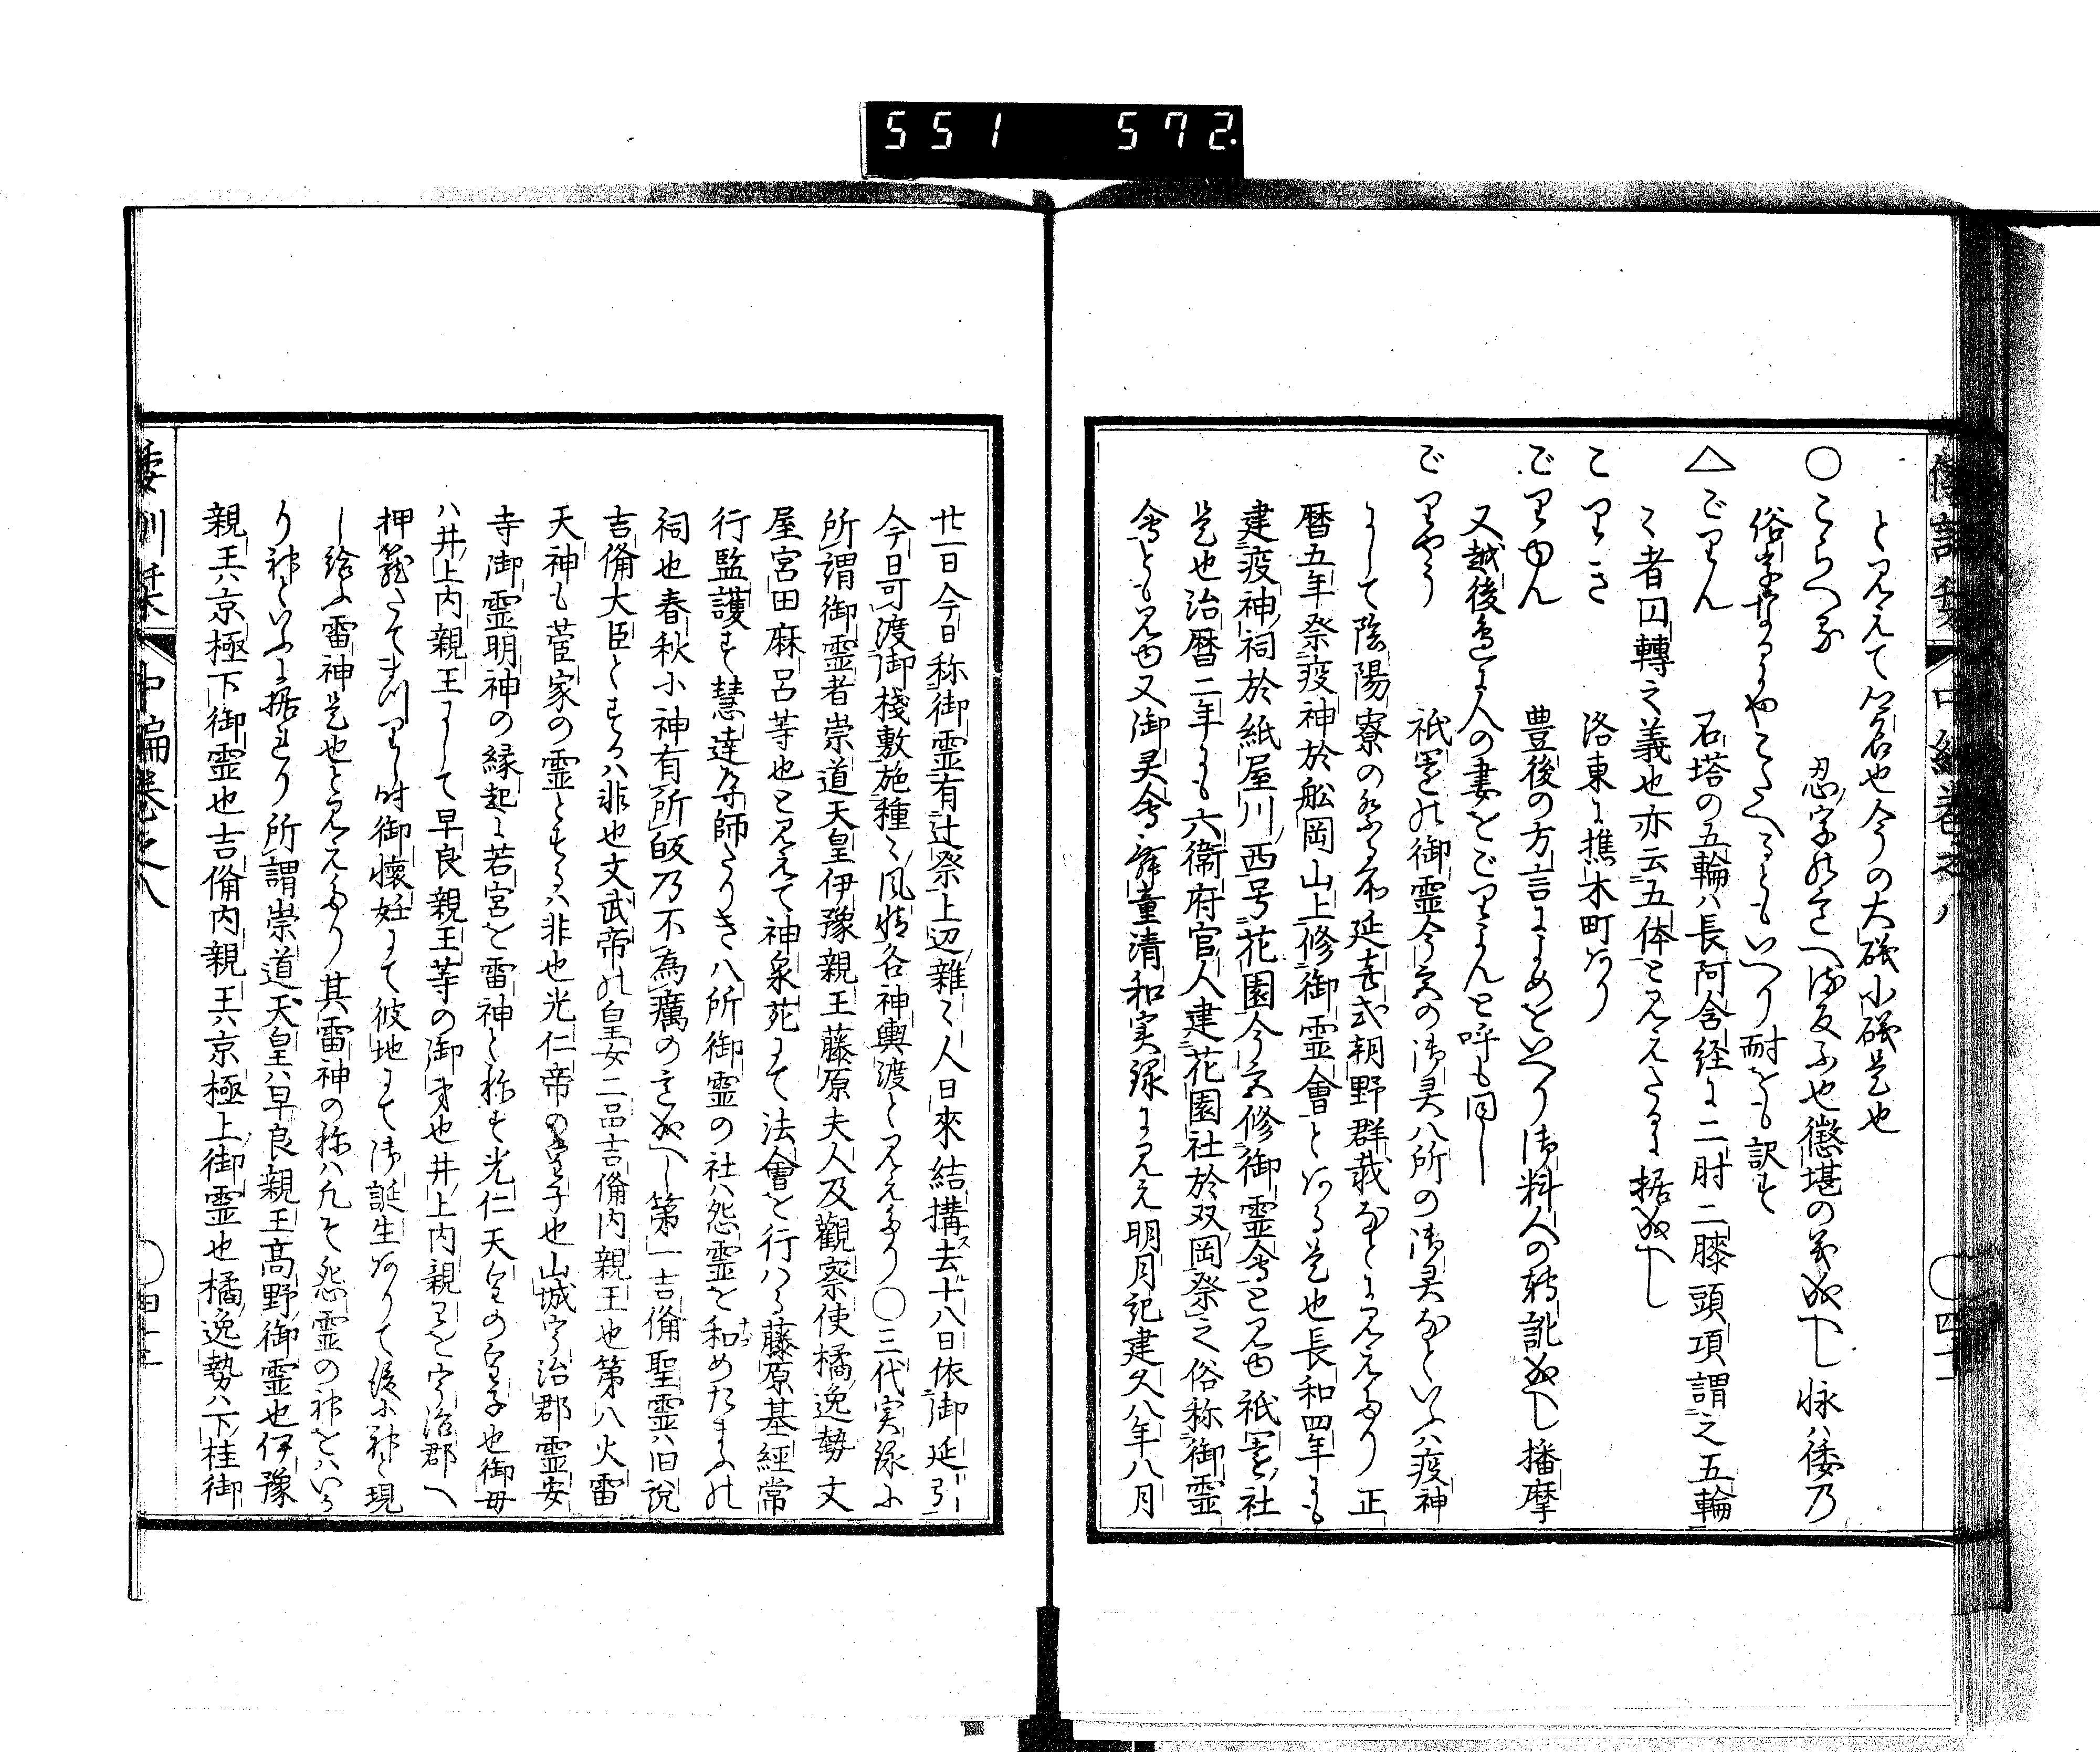 551 572.
倭訓栞 中編巻之八 〇四十二
とみえて公名也今の大磯小磯是也
〇こらへる 忍字をよめり 也懲堪の義成へし 怺ハ倭乃
俗字なるにやこたへるともいへり耐をも訳す
△ごりん 石塔の五輪ハ長阿含経に二肘二膝頭項謂之五輪
〻者円轉之義也亦云五体とみえたるに據成へし
こりき 洛東に樵木町あり
ごりゆん 豊後の方言によめをといへり御料人の転訛成へし播摩
又越後邊に人の妻をごりよんと呼も同し
ごりやう 祇園の御霊会今宮の御灵八所の御灵などいふハ疫神
にして陰陽寮の祭る所延喜式朝野群載などにみえたり正
暦五年祭疫神於船岡山上修御霊會とある是也長和四年にも
建疫神祠於紙屋川西号花園今宮修御霊会とみゆ祇園社
是也治暦二年にも六衛府官人建花園社於双岡祭之俗称御霊
会とも見ゆ又御灵会舞童清和実録に見え明月記建久八年八月
廿一日今日称御霊有辻祭上辺雜〻人日來結搆去十八日依御延引
今日可渡御棧敷施種〻風情各神輿渡とみえたり〇三代実録に
所謂御霊者崇道天皇伊豫親王藤原夫人及觀察使橘逸勢文
屋宮田麻呂等也とみえて神泉苑にて法會を行ハる藤原基經常
行監護す慧達為師たりき八所御霊の社ハ怨霊を和めたまふの
祠也春秋に神有所皈乃不為癘の意成へし第一吉備聖霊ハ旧説
吉備大臣とするハ非也文武帝の皇女二品吉備内親王也第八火雷
天神も菅家の霊とするハ非也光仁帝の皇子也山城宇治郡霊安
寺御霊明神の縁起に若宮を雷神と称す光仁天皇の皇子也御母
ハ井上内親王にして早良親王等の御弟也井上内親王を宇治郡へ
押籠たてまつりし時御懐妊にて彼地にて御誕生ありて後に神と現
し給ふ雷神是也とみえたり其雷神の称ハ凡そ怨霊の神をハいかつ
り神といふに據れり所謂崇道天皇ハ早良親王高野御霊也伊豫
親王ハ京極下御霊也吉備内親王ハ京極上御霊也橘逸勢ハ下桂御
倭訓栞 中編巻之八 〇四十三